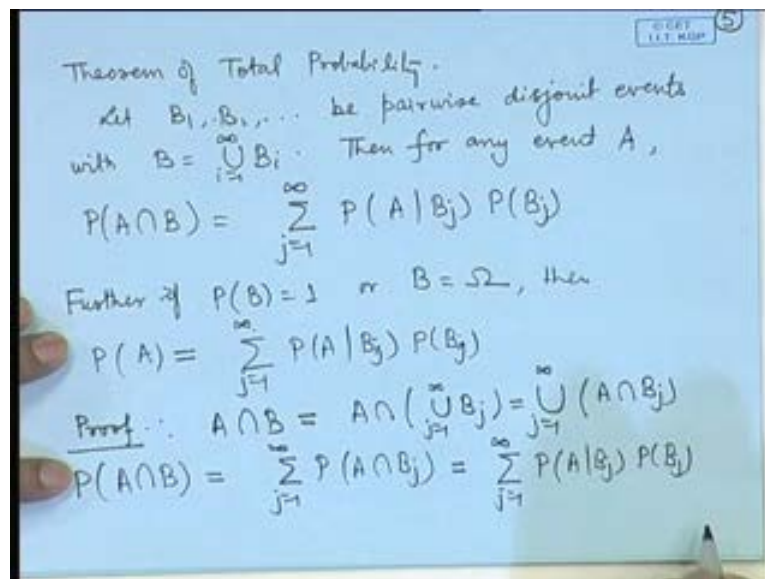 © CET
I.I.T. KGP
5
Theorem of Total Probability.
Let B₁, B₂, ... be pairwise disjoint events
with B = ∞⋃i=1 Bi. Then for any event A,
P(A∩B) = ∞∑j=1 P(A|Bj) P(Bj)
Further if P(B)=1 or B = Ω, then
P(A) = ∞∑j=1 P(A|Bj) P(Bj)
Proof: A∩B = A∩(∞⋃j=1 Bj) = ∞⋃j=1 (A∩Bj)
P(A∩B) = ∞∑j=1 P(A∩Bj) = ∞∑j=1 P(A|Bj) P(Bj)